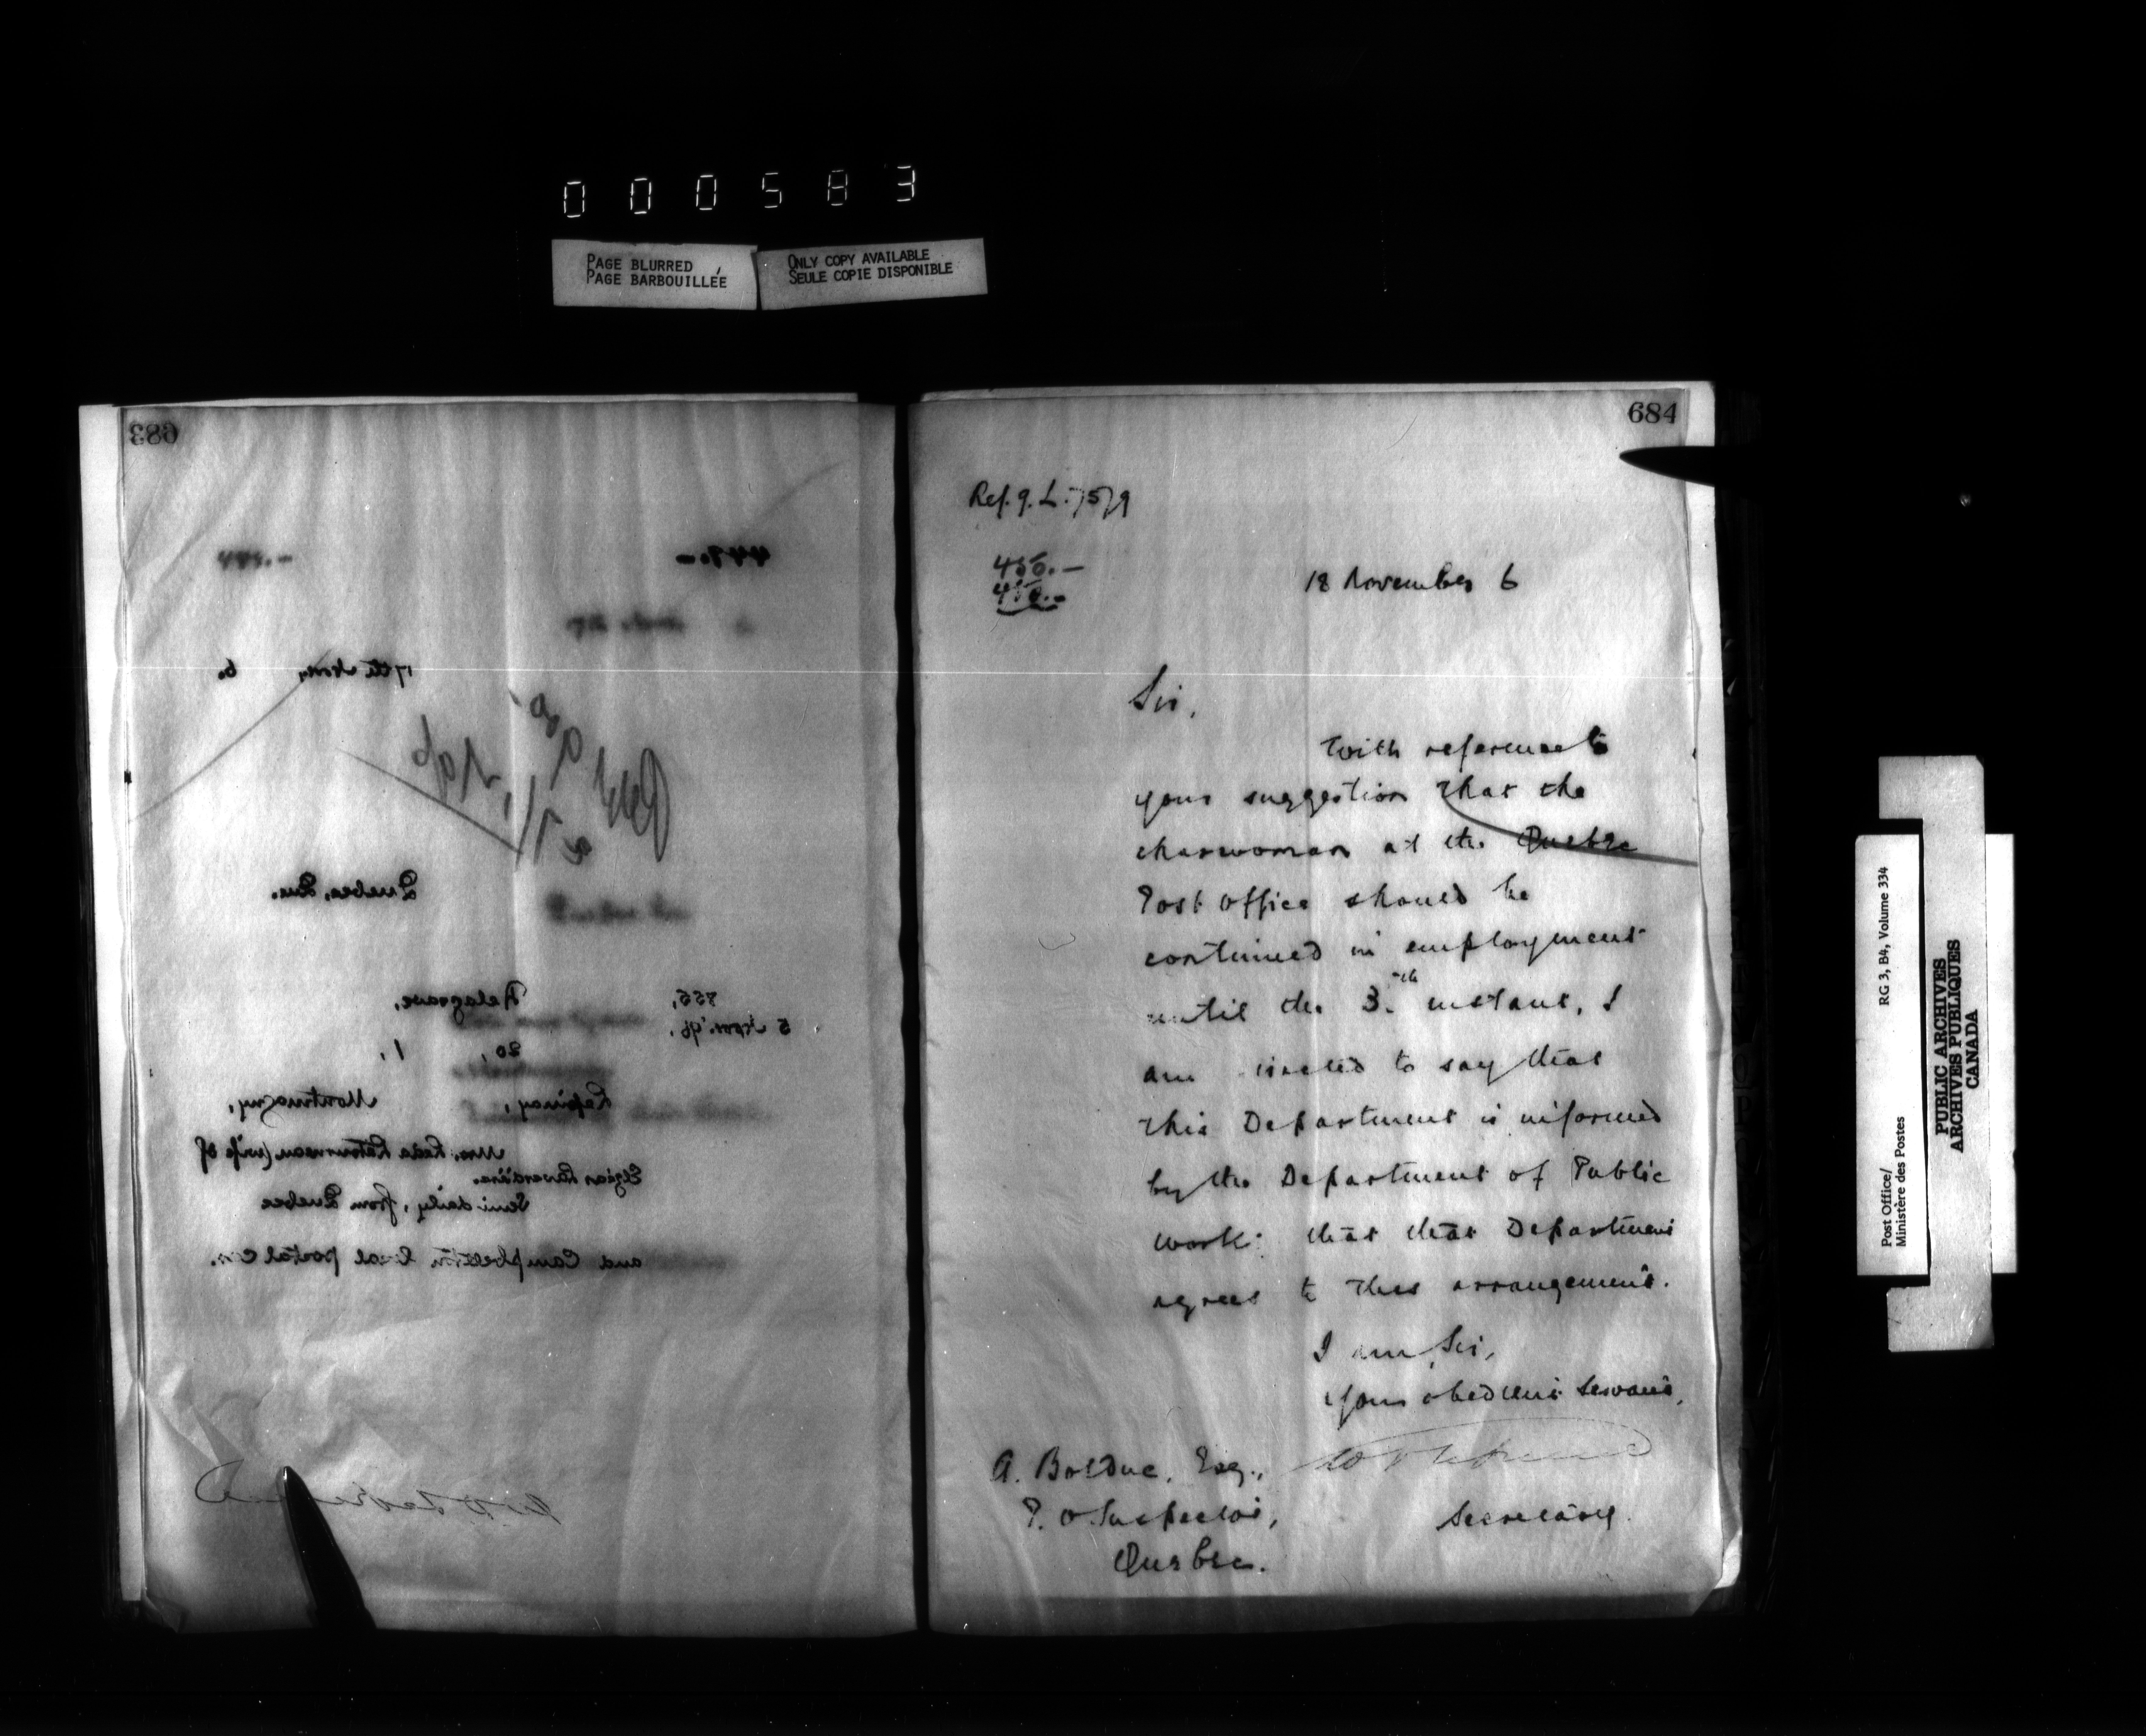 000583
PAGE BLURRED
PAGE BARBOUILLÉE
ONLY COPY AVAILABLE
SEULE COPIE DISPONIBLE
683
447.-
17th Nov. 6.
Quebec, Que.
855,
5 Nov. '96,
20, 1,
Lepinay, Montmagny,
Mrs. Leda Letourneau (wife of
Elzéar Laverdière.
Semi daily, from Quebec
and Campbellton local postal car.
684
Ref. 9. L. 7579
450.-
450.-
18 November 6
Sir,
With reference to
your suggestion that the
charwoman at the Quebec
Post Office should be
continued in employment
until the 3. th instant, I
am directed to say that
this Department is informed
by the Department of Public
Works that that Department
agrees to this arrangement.
I am, Sir,
Your obedient Servant,
A. Bolduc, Esq.,
P. O Inspector,
Quebec.
Secretary.
Post Office/
Ministère des Postes
RG 3, B4, Volume 334
PUBLIC ARCHIVES
ARCHIVES PUBLIQUES
CANADA